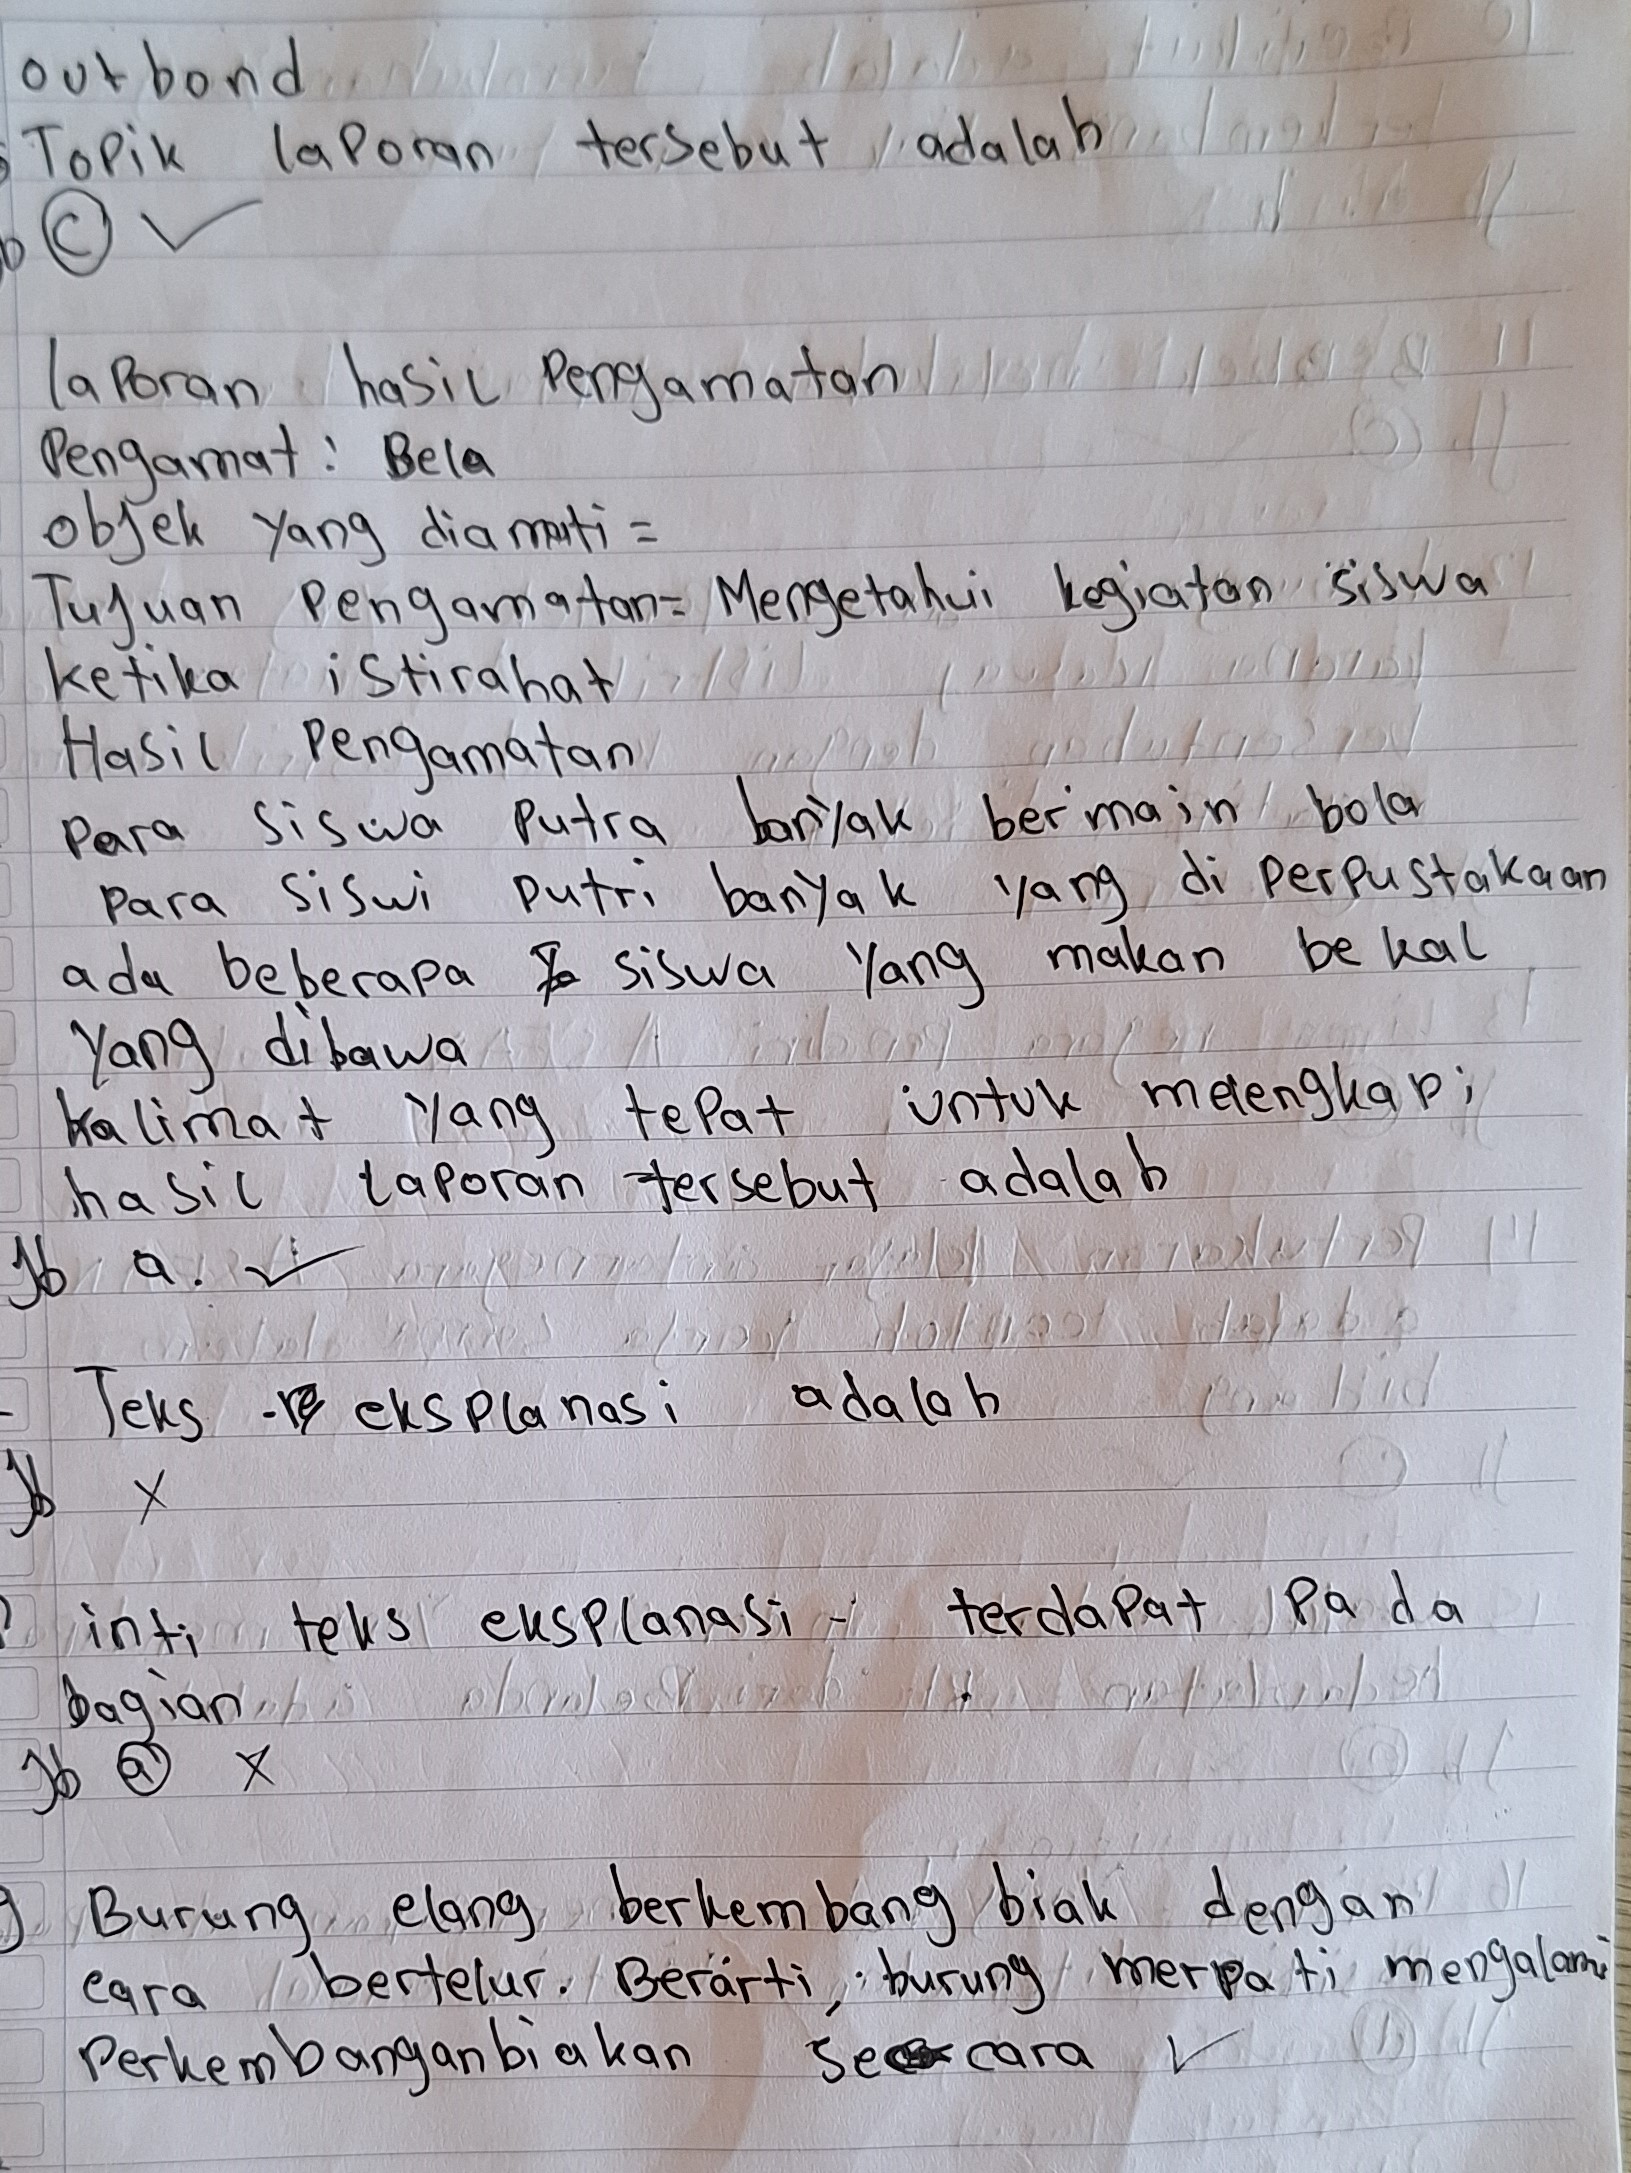 outbond
Topik laporan tersebut adalah
C ✓
laporan hasil Pengamatan
Pengamat: Bela
objek yang diamati =
Tujuan Pengamatan= Mengetahui kegiatan siswa
ketika istirahat
Hasil Pengamatan
Para siswa Putra banyak bermain bola
Para siswi Putri banyak yang di Perpustakaan
ada beberapa siswa yang makan bekal
yang dibawa
kalimat yang tepat untuk melengkapi
hasil laporan tersebut adalah
Jb a. ✓
Teks eksplanasi adalah
Jb X
inti teks eksplanasi - terdapat Pada
bagian
Jb a X
Burung elang berkembang biak dengan
cara bertelur. Berarti, burung merpati mengalami
Perkembanganbiakan secara ✓